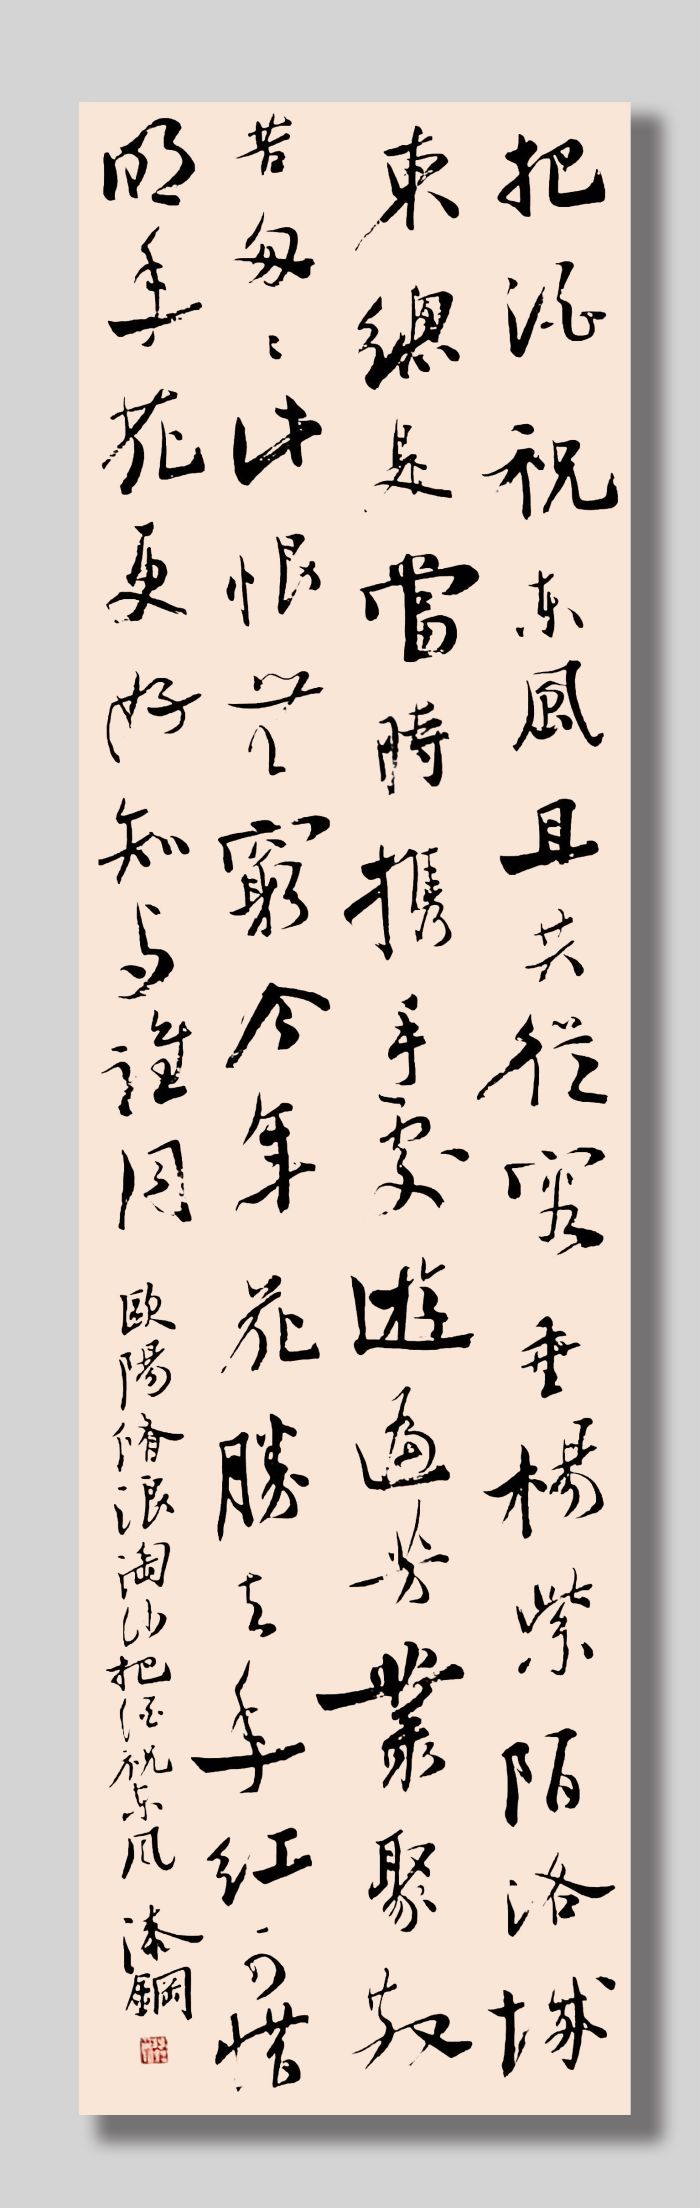 把酒祝东風且共從容垂楊紫陌洛城
東總是當時攜手處遊遍芳叢聚散
苦匆〻此恨無窮今年花勝去年紅可惜
明年花更好知与誰同
歐陽脩浪淘沙把酒祝东风
漆鋼